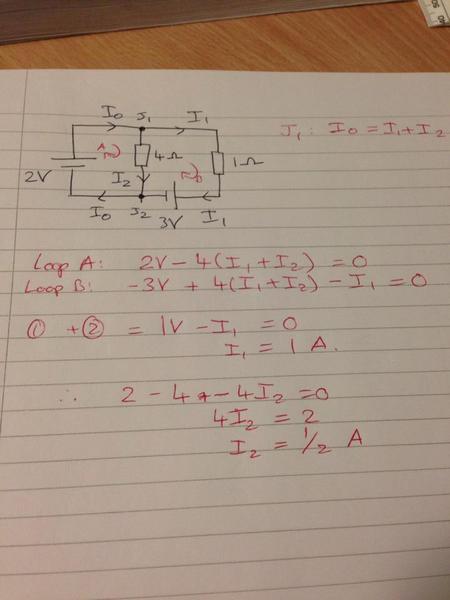 I0 J1 I1
J1: I0 = I1 + I2
A 4Ω 1Ω
2V I2
I0 J2 3V I1
Loop A: 2V - 4(I1 + I2) = 0
Loop B: -3V + 4(I1 + I2) - I1 = 0
① + ② = 1V - I1 = 0
I1 = 1 A.
∴ 2 - 4 - 4I2 = 0
4I2 = 2
I2 = 1/2 A